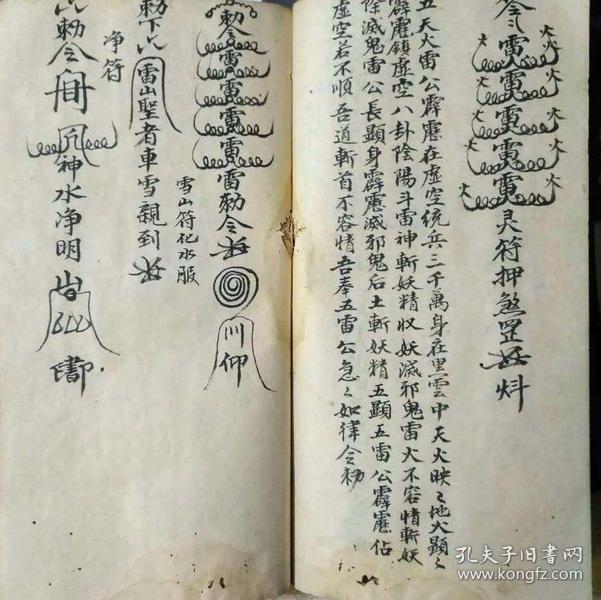 令〻雷雷雷雷雷灵符押煞罡
火火火火火火火火火火
五天火雷公霹靂在虛空統兵三千萬身在黑雲中天火映〻地火顯〻
霹靂鎮虛空八卦陰陽斗雷神斬妖精收妖滅邪鬼雷火不容情斬妖
除滅鬼雷公長顯身霹靂滅邪鬼后土斬妖精五顯五雷公霹靂佔
虛空若不順吾道斬首不容情吾奉五雷公急〻如律令勅
勅令雷雷雷雷雷勅令
川仰
雪山符化水服
勅下
雪山聖者車雪親到
净符
勅令
神水净明
孔夫子旧书网
www.kongfz.com